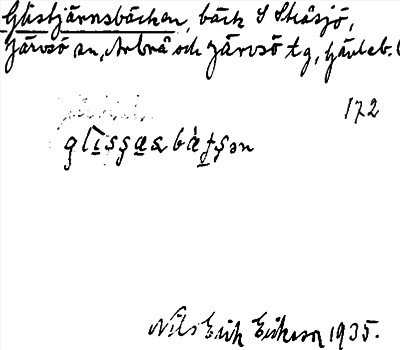 Glisstjärnsbäcken, bäck S Stråsjö,
Järvsö sn, Arbrå och Järvsö tg, Gävleb. l
172
Nils Erik Eriksson 1935.